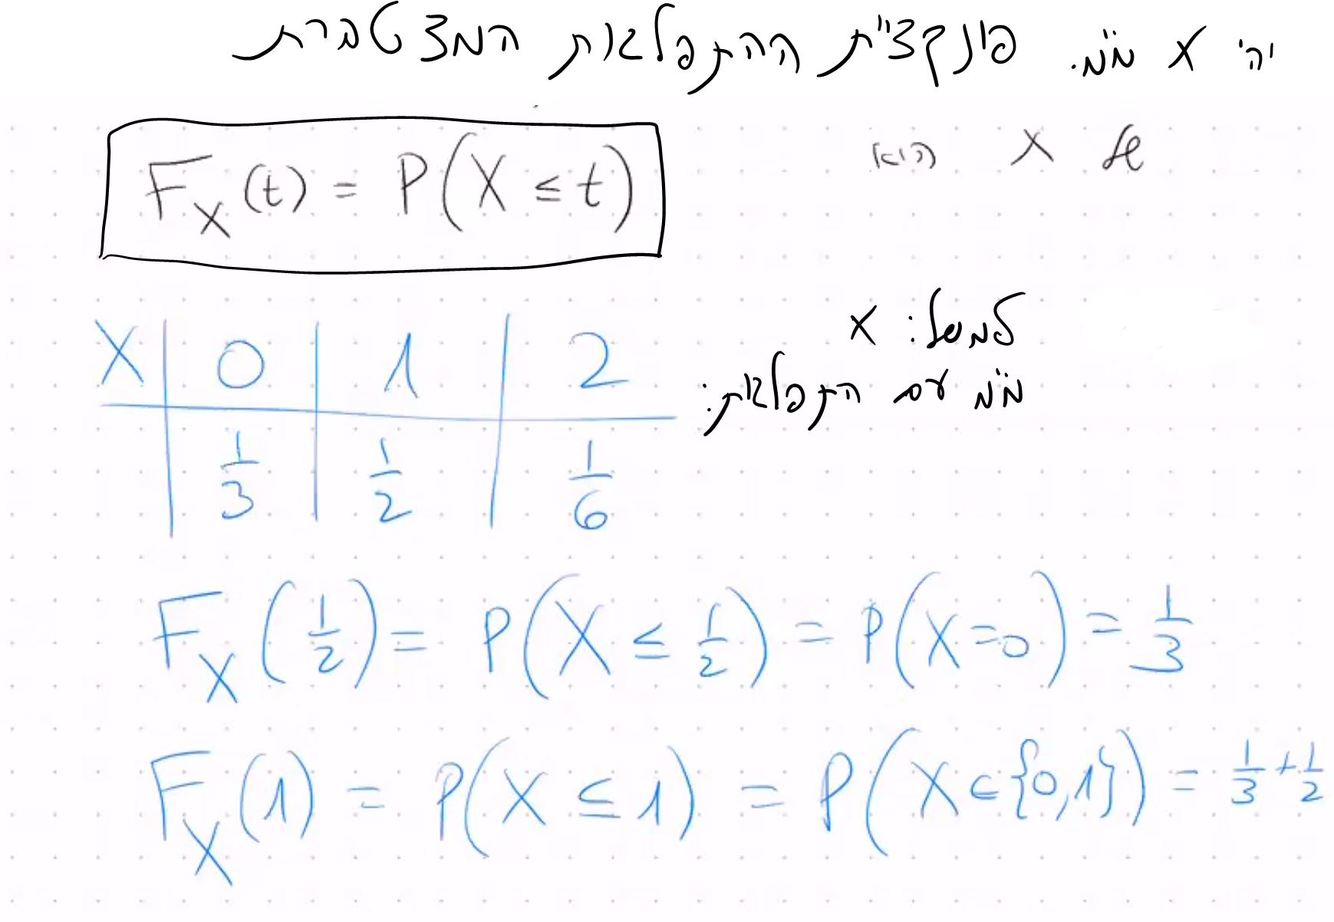 יהי X מ"מ. פונקציית ההתפלגות המצטברת
של X היא
F_X(t) = P(X ≤ t)
למשל: X
מ"מ עם התפלגות:
X | 0 | 1 | 2
1/3 | 1/2 | 1/6
F_X(1/2) = P(X ≤ 1/2) = P(X=0) = 1/3
F_X(1) = P(X ≤ 1) = P(X∈{0,1}) = 1/3 + 1/2